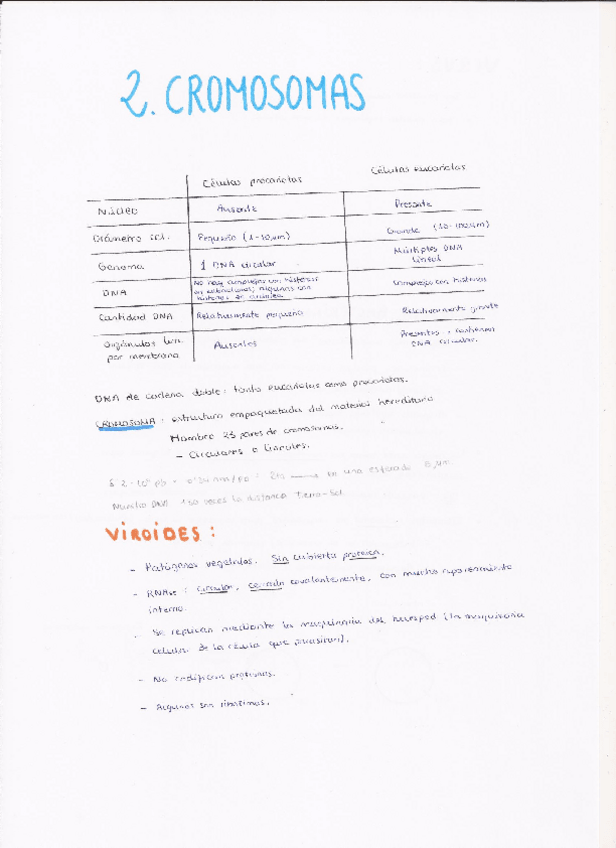 2. CROMOSOMAS
Células procariotas
Células eucariotas
Núcleo
Ausente
Presente
Diámetro cél.
Pequeño (1-10µm)
Grande (10-100µm)
Genoma
1 DNA circular
Múltiples DNA
lineal
DNA
No hay complejos con histonas
histonas
Complejos con histonas
Cantidad DNA
Relativamente pequeña
Relativamente grande
Orgánulos
por membrana
Ausentes
Presentes, contienen
DNA circular.
DNA de cadena doble: tanto eucariotas como procariotas.
CROMOSOMA: estructura empaquetada del material hereditario
Hombre 23 pares de cromosomas.
- Circulares o lineales.
en una esfera de
Mucho DNA 130 veces la distancia Tierra-Sol.
VIROIDES:
- Patógenos vegetales. Sin cubierta proteica.
- RNAsc: circular, cerrado covalentemente, con mucho apareamiento
interno.
- Se replican mediante la maquinaria del huésped (la maquinaria
celular de la célula que parasitan).
- No codifican proteínas.
- Algunos son ribozimas.